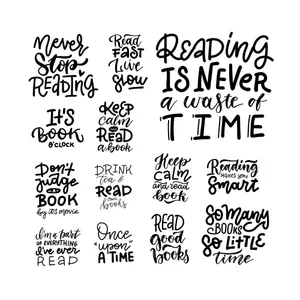 Never
Stop
READING
Read
FAST
Live
slow
READING
IS NEVER
a waste of
TIME
IT'S
BOOK
O'CLOCK
KEEP
Calm
AND
READ
a book
Don't
judge
A
BOOK
by it's movie
DRINK
tea &
READ
books
Keep
CALM
and read
BOOK
Reading
MAKES YOU
Smart
I'm a part
OF EVERYTHING
I've ever
READ
Once
"upon"
A TIME
READ
good
books
So many
BOOKS
SO LITTLE
time